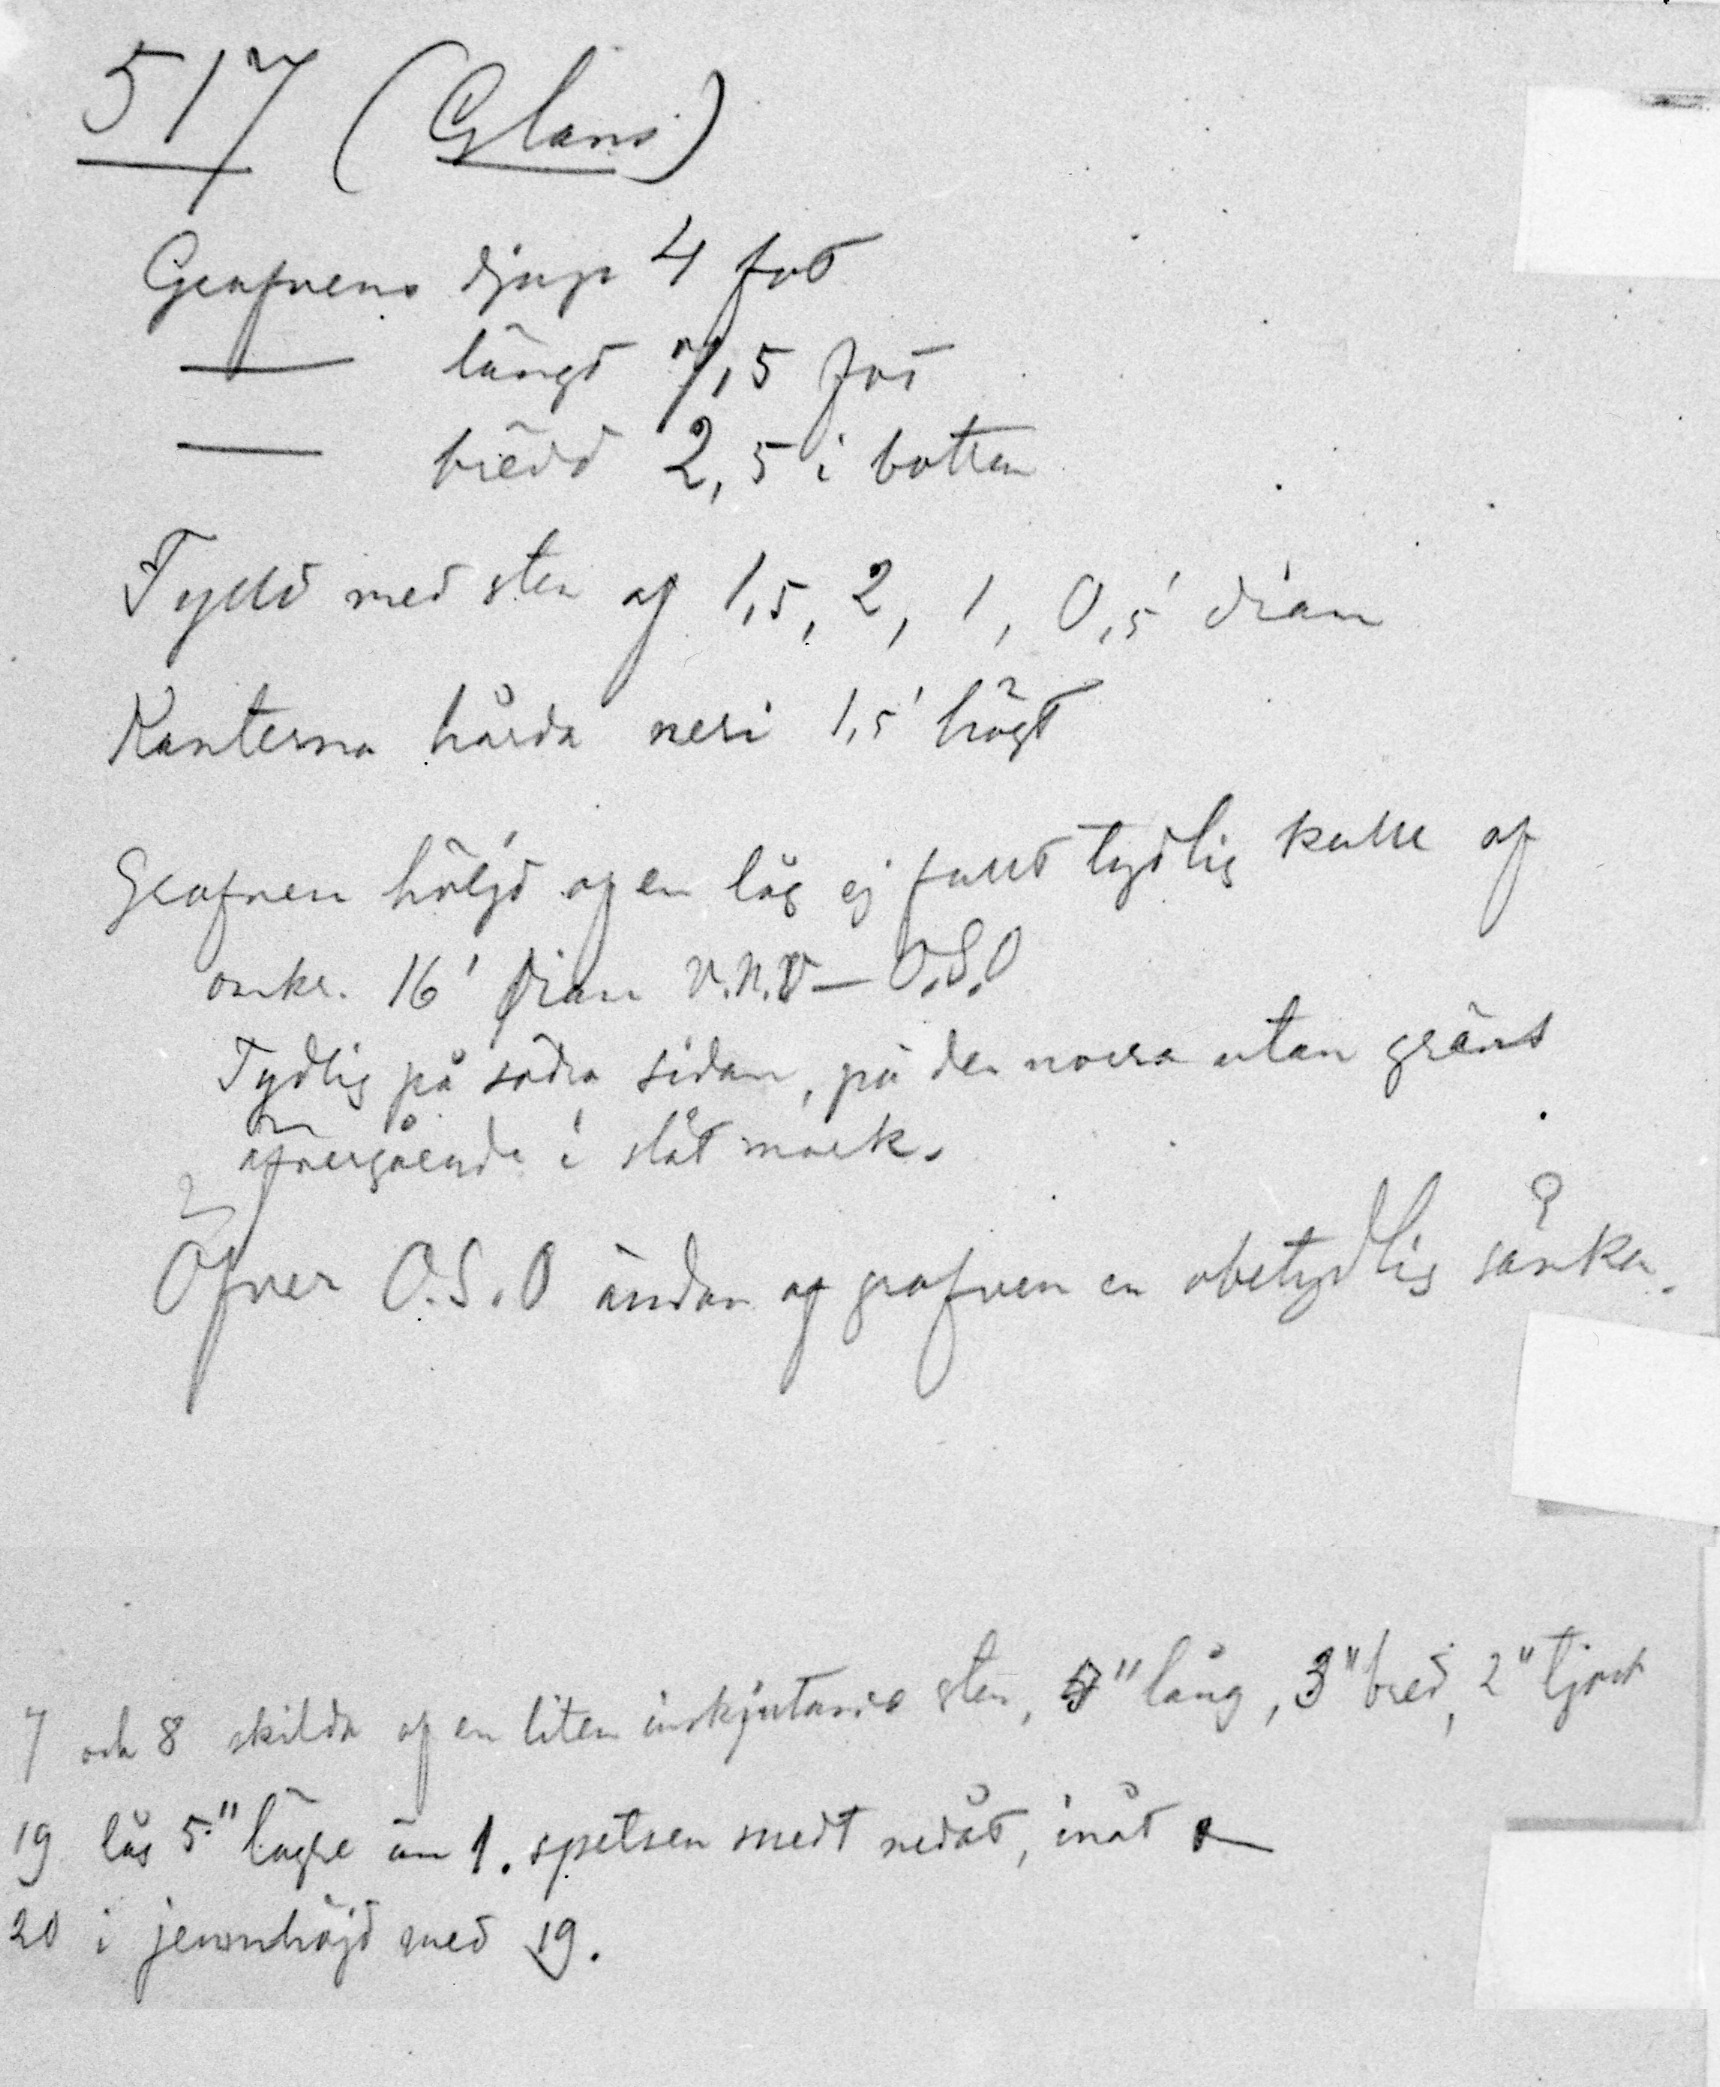 517 (Glans)
Grafvens djup 4 fot
— längd 7,5 fot
— bredd 2,5 i botten
Fylld med sten af 1,5, 2, 1, 0,5' diam
Kanterna hårda neri 1,5' högt
Grafven höljd af en låg ej fullt tydlig kulle af
omkr. 16' diam V.N.V — O.S.O
Tydlig på södra sidan, på den norra utan gräns
öfvergående i slät mark.
Öfver O.S.O ändan af grafven en obetydlig sänka.
7 och 8 skilda af en liten inskjutande sten, "lång, 3" bred, 2" tjock
19 låg 5" lägre än 1. spetsen snedt nedåt, inåt
20 i jemnhöjd med 19.